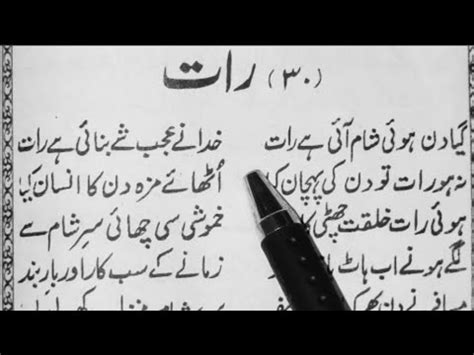 (۳۰) رات
گیا دن ہوئی شام آئی ہے رات خدا نے عجب شے بنائی ہے رات
نہ ہو رات تو دن کی پہچان کیا اُٹھائے مزہ دن کا انسان کیا
ہوئی رات خلقت چھٹی خموشی سی چھائی سرِ شام سے
لگے ہونے اب ہاٹ زمانے کے سب کار اور بار بند
مسافر نے دن بھر